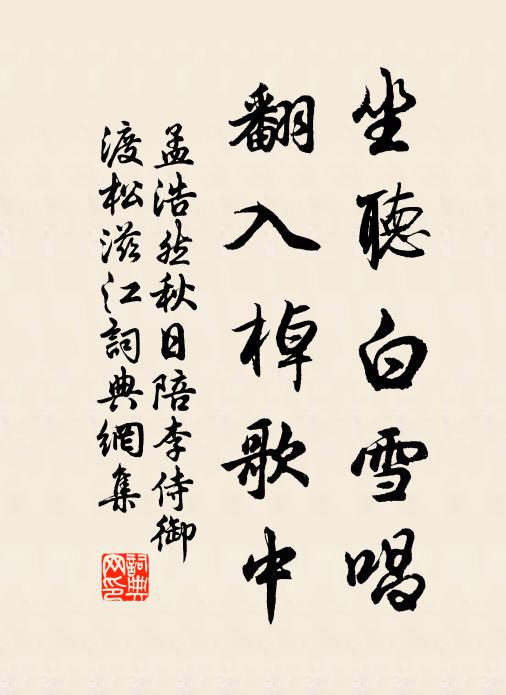 坐聽白雪唱
翻入棹歌中
孟浩然秋日陪李侍御
渡松滋江詞典網集
詞典网印